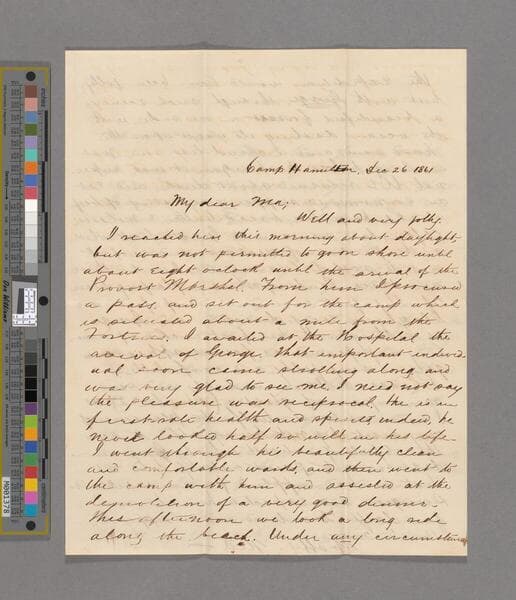 Camp Hamilton, Dec 26 1861
My dear Ma;
Well and very jolly.
I reached here this morning about daylight
but was not permitted to go on shore until
about Eight oclock until the arival of the
Provost Marshal From him I procured
a pass, and set out for the camp which
is situated about a mile from the
Fortress. I awaited at the Hospital the
arrival of George. That important individ-
ual soon came strolling along and
was very glad to see me. I need not say
the pleasure was reciprocal. He is in
first rate health and spirits, indeed, he
never looked half so well in his life.
I went through his beautifully clean
and comfortable wards, and then went to
the camp with him and assisted at the
demolition of a very good dinner-
This afternoon we took a long ride
along the beach. Under any circumstances
M001378